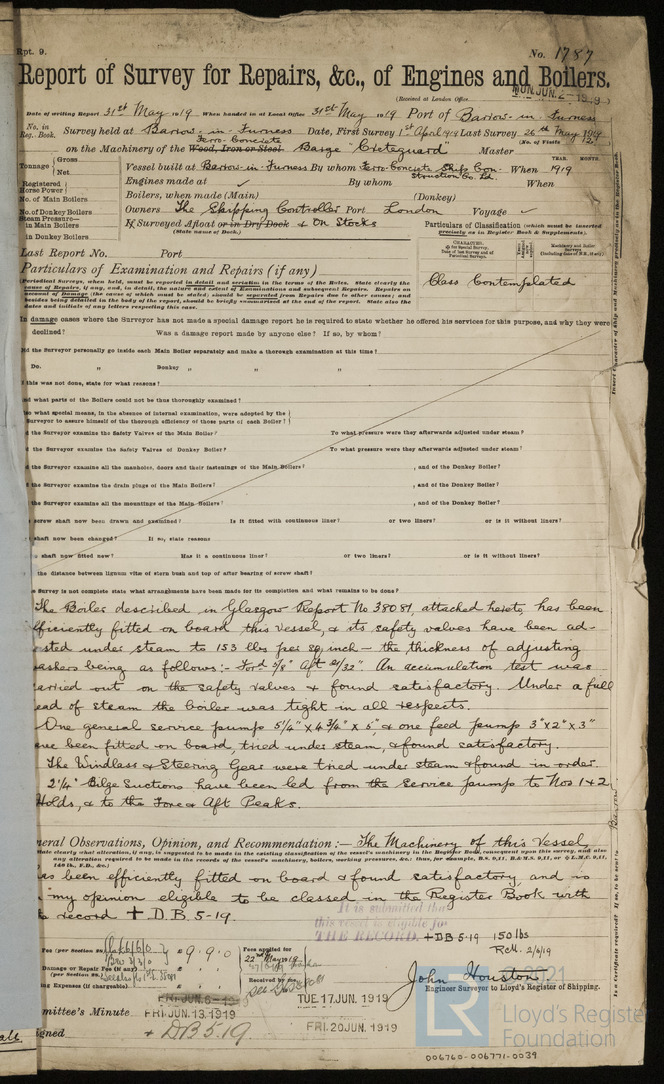 Rpt. 9.
No. 1787
Report of Survey for Repairs, &c., of Engines and Boilers.
(Received at London Office MON. JUN. 2 - 1919)
Date of writing Report 31st May 1919 When handed in at Local Office 31st May 1919 Port of Barrow-in-Furness
No. in Reg. Book. Survey held at Barrow-in-Furness Date, First Survey 1st April 1919 Last Survey 26th May 1919
(No. of Visits 12)
on the Machinery of the Wood, Iron or Steel Ferro-Concrete Barge "Creteguard" Master
Tonnage Gross Net
Vessel built at Barrow-in-Furness By whom Ferro-Concrete Ship Construction Co. Ld. When 1919
YEAR. MONTH.
Registered Horse Power
Engines made at ✓ By whom When
No. of Main Boilers
Boilers, when made (Main) (Donkey)
No. of Donkey Boilers
Owners The Shipping Controller Port London Voyage ✓
Steam Pressure— in Main Boilers
in Donkey Boilers
If Surveyed Afloat or in Dry Dock & On Stocks
(State name of Dock.)
Particulars of Classification (which must be inserted precisely as in Register Book & Supplements).
Class Contemplated
Last Report No. Port
Particulars of Examination and Repairs (if any)
Periodical Surveys, when held, must be reported in detail and seriatim in the terms of the Rules. State clearly the
cause of Repairs, if any, and, in detail, the nature and extent of Examinations and subsequent Repairs. Repairs on
account of Damage (the cause of which must be stated) should be separated from Repairs due to other causes; and
besides being detailed in the body of the report, should be briefly summarized at the end of the report. State also the
dates and initials of any letters respecting this case.
In damage cases where the Surveyor has not made a special damage report he is required to state whether he offered his services for this purpose, and why they were
declined? Was a damage report made by anyone else? If so, by whom?
Did the Surveyor personally go inside each Main Boiler separately and make a thorough examination at this time?
Do. " Donkey " " "
If this was not done, state for what reasons?
And what parts of the Boilers could not be thus thoroughly examined?
To what special means, in the absence of internal examination, were adopted by the
Surveyor to assure himself of the thorough efficiency of those parts of each Boiler?
Did the Surveyor examine the Safety Valves of the Main Boiler? To what pressure were they afterwards adjusted under steam?
Did the Surveyor examine the Safety Valves of Donkey Boiler? To what pressure were they afterwards adjusted under steam?
Did the Surveyor examine all the manholes, doors and their fastenings of the Main Boilers? , and of the Donkey Boiler?
Did the Surveyor examine the drain plugs of the Main Boilers? , and of the Donkey Boiler?
Did the Surveyor examine all the mountings of the Main Boilers? , and of the Donkey Boiler?
screw shaft now been drawn and examined? Is it fitted with continuous liner? or two liners? or is it without liners?
shaft now been changed? If so, state reasons
shaft now fitted new? Has it a continuous liner? or two liners? or is it without liners?
the distance between lignum vitæ of stern bush and top of after bearing of screw shaft?
Survey is not complete state what arrangements have been made for its completion and what remains to be done?
The Boiler described in Glasgow Report No 38081, attached hereto, has been
efficiently fitted on board this vessel, & its safety valves have been ad-
sted under steam to 153 lbs per sq inch – the thickness of adjusting
ashers being as follows:- For'd 5/8" Aft 21/32". An accumulation test was
arried out on the safety valves & found satisfactory. Under a full
ead of steam the boiler was tight in all respects.
One general service pump 5¼" x 4¾" x 5", & one feed pump 3" x 2" x 3"
ave been fitted on board, tried under steam, & found satisfactory.
The Windlass & Steering Gear were tried under steam & found in order.
2¼" Bilge Suctions have been led from the Service pump to Nos 1 & 2
Holds, & to the Fore & Aft Peaks.
eral Observations, Opinion, and Recommendation:— The Machinery of this Vessel
as been efficiently fitted on board & found satisfactory and is
my opinion eligible to be classed in the Register Book with
record + D.B. 5-19.
It is submitted that
this vessel is eligible for
THE RECORD. + DB 5.19 150 lbs
2/6/19
Fee (per Section 28.) £ 9. 9. 0
Damage or Repair Fee (if any)
(per Section 28.)
ing Expenses (if chargeable)
Fees applied for
22nd May 1919
Received by
John Houston
Engineer Surveyor to Lloyd's Register of Shipping.
FRI. JUN. 6 - 19
TUE. 17 JUN. 1919
mittee's Minute FRI. JUN. 13. 1919
FRI. 20 JUN. 1919
signed + DB 5.19.
© 2021
LR
Lloyd's Register
Foundation
006760-006771-0039